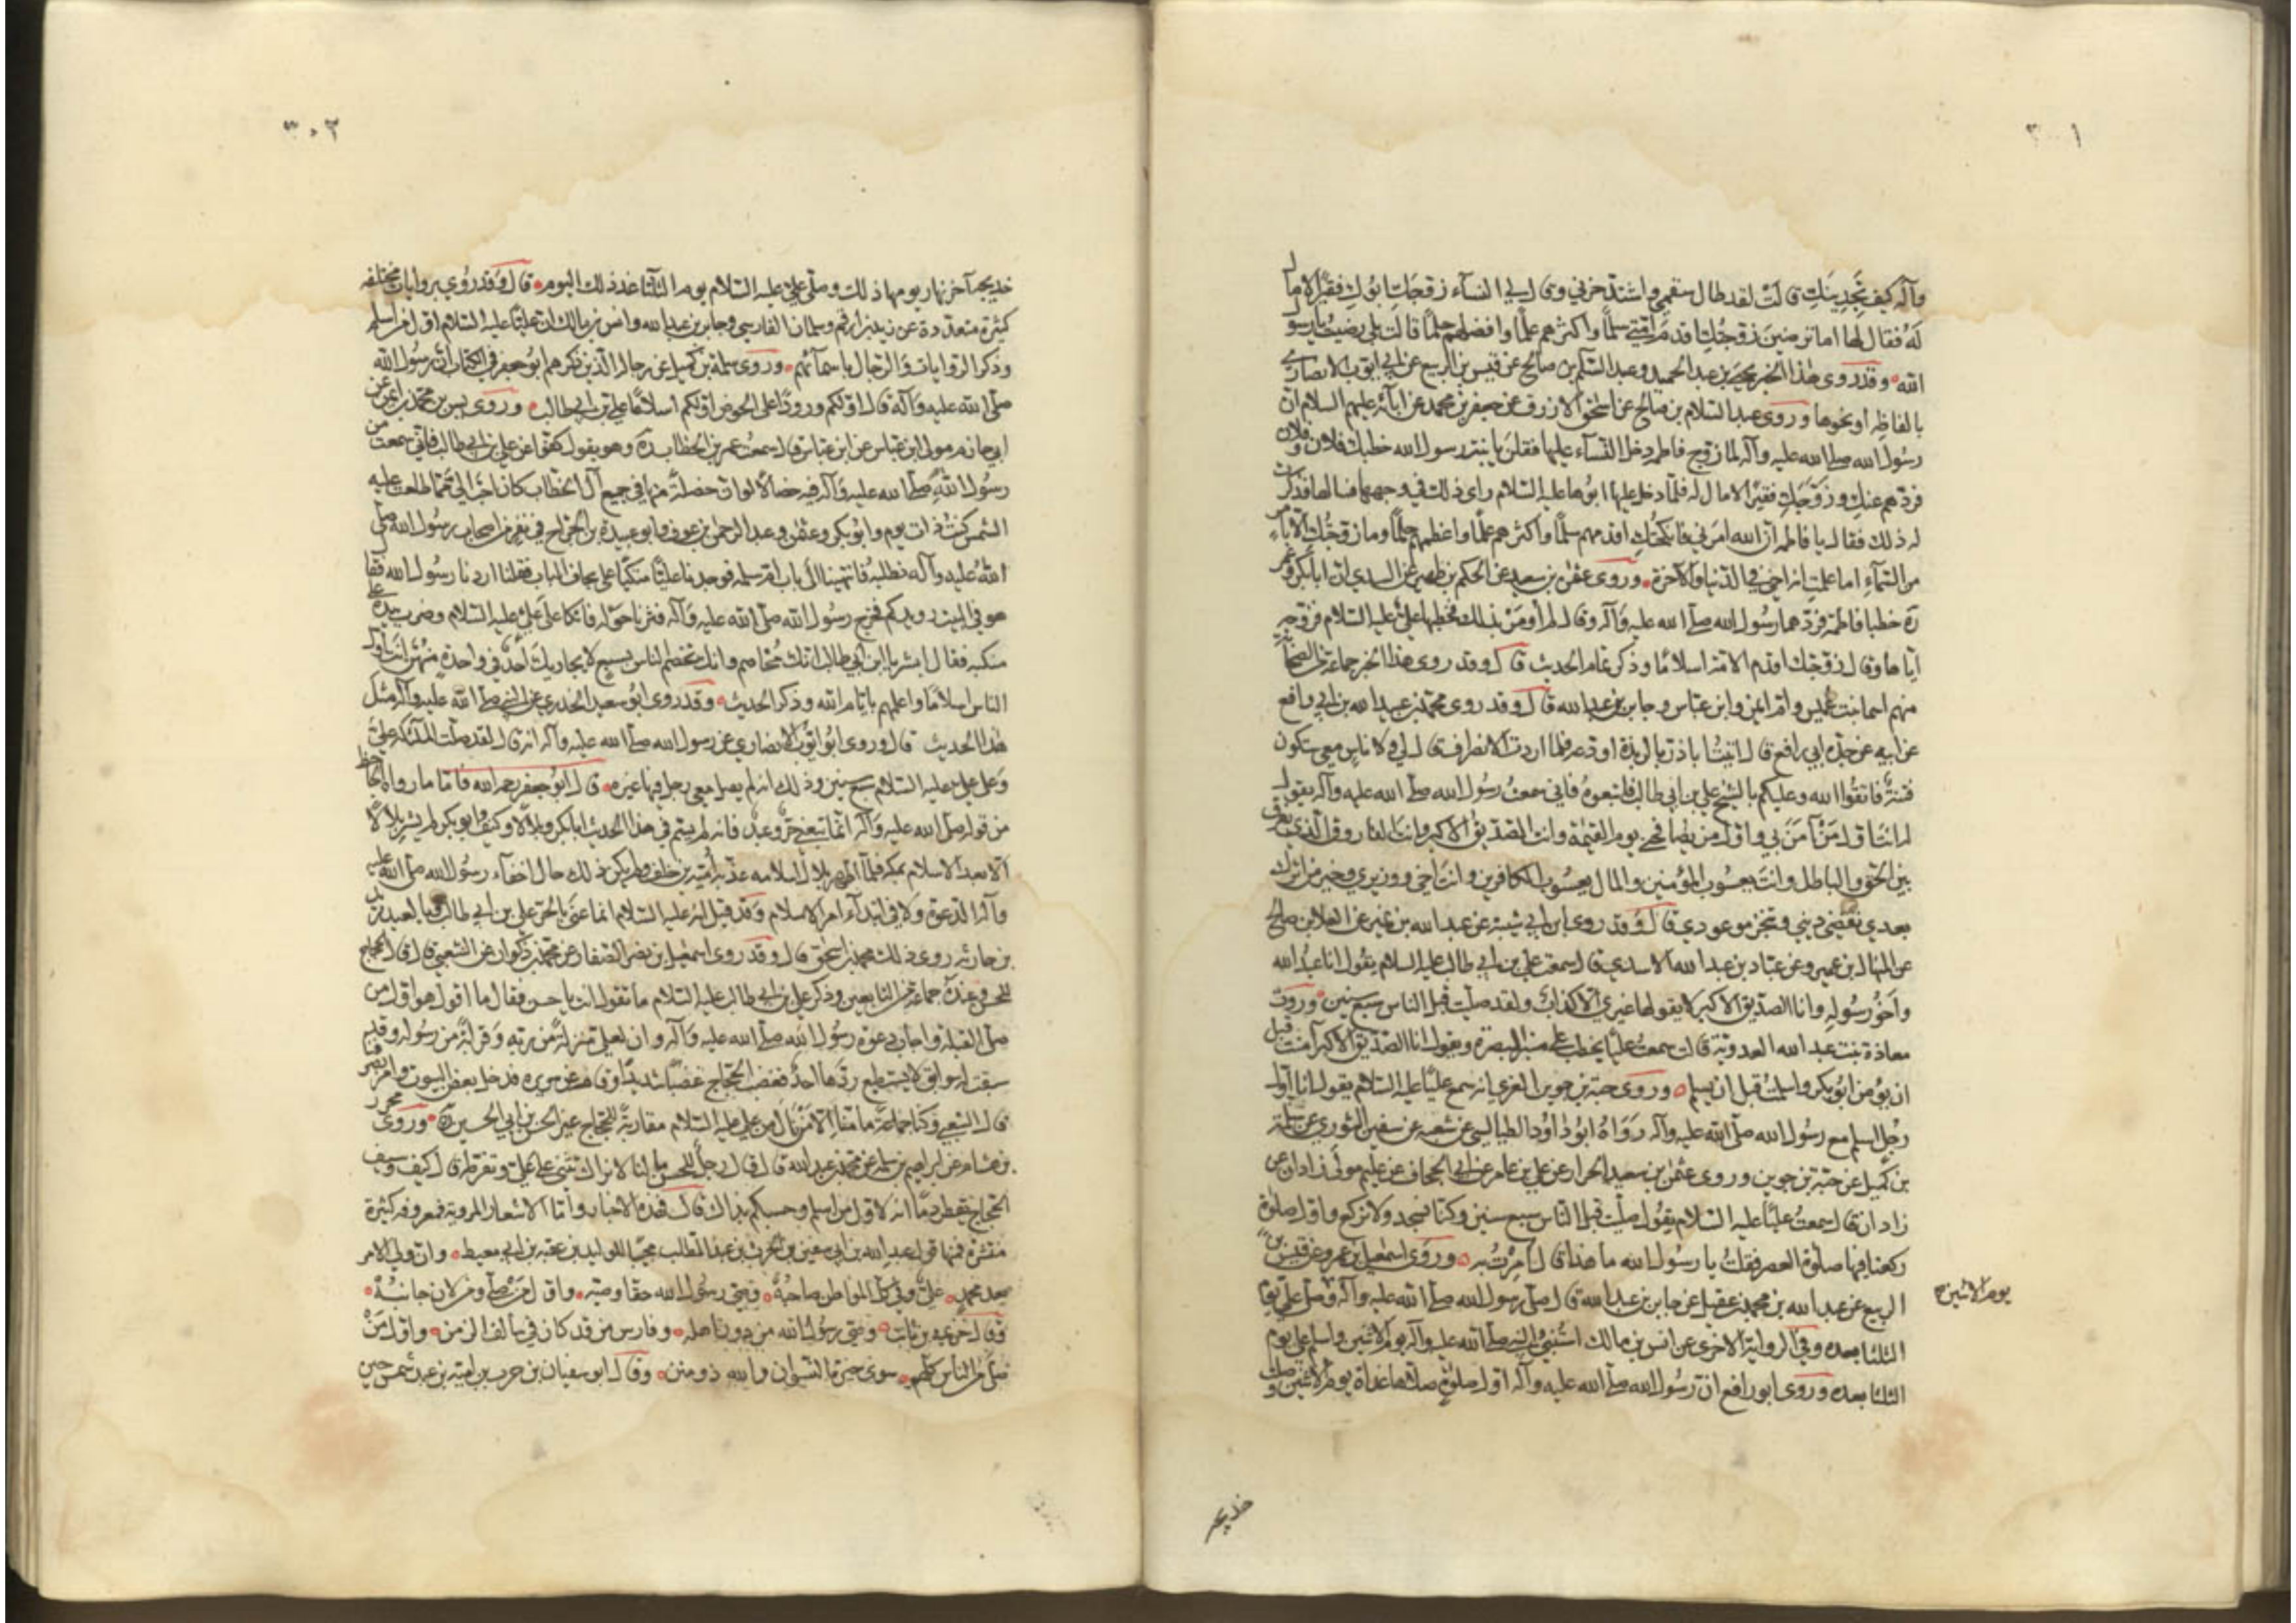 ٣٠١
وآله كيف تجدينك قالت لقد طال سقمي واشتد حزني وقال لي النساء زوجك ابوك فقيرا لا مال
له فقال لها اما ترضين زوجتك اقدم امتي سلما واكثرهم علما وافضلهم حلما قالت بلى رضيت يا رسول
الله وقد روى هذا الخبر يحيى بن عبد الحميد وعبد السلم بن صالح عن قيس بن الربيع عن ابي ايوب الانصاري
بالفاظه او نحوها وروى عبد السلام بن صالح عن اسحق الازرق عن جعفر بن محمد عن ابآئه عليهم السلام ان
رسول الله صلى الله عليه وآله لما زوج فاطمه دخل النسآء عليها فقلن يا بنت رسول الله خطبك فلان وفلان
فردهم عنك وزوجك فقيرا لا مال له فلما دخل عليها ابوها عليه السلام راى ذلك في وجهها فسالها فذكرت
له ذلك فقال يا فاطمه ان الله امرني فانكحتك اقدمهم سلما واكثرهم علما واعظمهم حلما وما زوجتك الا بامر
من السمآء اما علمت انه اخي في الدنيا والآخرة وروى عثمن بن سعيد عن الحكم بن ظهير عن السدي ان ابا بكر وعمر
رة خطبا فاطمة فردهما رسول الله صلى الله عليه وآله وقال لم أومر بذلك فخطبها علي عليه السلام فزوجه
اياها وقال زوجتك اقدم الامة اسلاما وذكر تمام الحديث قال وقد روى هذا الخبر جماعة من الصحابة
منهم اسما بنت عميس وام ايمن وابن عباس وجابر بن عبد الله قال وقد روى محمد بن عبيد الله بن ابي رافع
عن ابيه عن جده ابي رافع قال اتيت ابا ذر بالربذة اودعه فلما اردت الانصراف قال لي ولاناس معي ستكون
فتنة فاتقوا الله وعليكم بالشيخ علي بن ابي طالب فاتبعوه فاني سمعت رسول الله صلى الله عليه وآله يقول
له انت اول من آمن بي واول من يصافحني يوم القيمة وانت الصديق الاكبر وانت الفاروق الذي يفرق
بين الحق والباطل وانت يعسوب المؤمنين والمال يعسوب الكافرين وانت اخي ووزيري وخير من اترك
بعدي تقضي ديني وتنجز موعودي قال وقد روى ابن ابي شيبة عن عبد الله بن نمير عن العلا بن صالح
عن المنهال بن عمير وعن عباد بن عبد الله الاسدي قال سمعت علي بن ابي طالب عليه السلام يقول انا عبد الله
واخو رسوله وانا الصديق الاكبر لا يقولها غيري الا كذاب ولقد صليت قبل الناس سبع سنين وروت
معاذة بنت عبد الله العدوية قالت سمعت عليا يخطب على منبر البصرة ويقول انا الصديق الاكبر آمنت قبل
ان يؤمن ابو بكر واسلمت قبل ان يسلم وروى حبة بن جوين العرني انه سمع عليا عليه السلام يقول انا اول
رجل اسلم مع رسول الله صلى الله عليه وآله رواه ابو داود الطيالسي عن شعبة عن سفين الثوري عن سلمة
بن كهيل عن حبة بن جوين وروى عثمن بن سعيد الحراز عن علي بن عامر عن ابي الحجاف عن عليم مولى زاذان عن
زاذان قال سمعت عليا عليه السلام يقول صليت قبل الناس سبع سنين وكنا نسجد ولا نركع واول صلوة
ركعنا فيها صلوة العصر فقلت يا رسول الله ما هذا قال أمرت به وروى اسمعيل بن عمرو عن قيس بن
الربيع عن عبد الله بن محمد بن عقيل عن جابر بن عبد الله قال صلى رسول الله صلى الله عليه وآله وصلى علي يوم
يوم الاثنين ح
الثلثا بعده وفي الرواية الاخرى عن انس بن مالك استنبئ النبي صلى الله عليه وآله يوم الاثنين واسلم علي يوم
الثلثا بعده وروى ابو رافع ان رسول الله صلى الله عليه وآله اول صلوة صلاها غداة يوم الاثنين وصلت
خديجه
٣٠٢
خديجه آخر نهار يومها ذلك وصلى علي عليه السلام يوم الثلثا غد ذلك اليوم قال وقد روي بروايات مختلفه
كثيرة متعددة عن زيد بن ارقم وسلمان الفارسي وجابر بن عبد الله وانس بن مالك ان عليا عليه السلام اول من اسلم
وذكر الروايات والرجال باسمآئهم وروى سلمة بن كهيل عن رجاله الذين ذكرهم ابو جعفر في الكتاب ان رسول الله
صلى الله عليه وآله قال اولكم ورودا على الحوض اولكم اسلاما علي بن ابي طالب وروى يس بن محمد بن ايمن عن
ابي حازم مولى ابن عباس عن ابن عباس قال سمعت عمر بن الخطاب رة وهو يقول كفوا عن علي بن ابي طالب فاني سمعت من
رسول الله صلى الله عليه وآله فيه خصالا لو ان خصلة منها في جميع آل الخطاب كان احب الي مما طلعت عليه
الشمس كنت ذات يوم وابو بكر وعثمن وعبد الرحمن بن عوف وابو عبيدة بن الجراح في نفر من اصحاب رسول الله صلى
الله عليه وآله نطلبه فانتهينا الى باب ام سلمه فوجدنا عليا متكيا على نجاف الباب فقلنا اردنا رسول الله فقال
هو في البيت رويدكم فخرج رسول الله صلى الله عليه وآله فسرنا حوله فاتكا على علي عليه السلام وضرب بيده على
منكبه فقال ابشر يا ابن ابي طالب انك مخاصم وانك تخصم الناس بسبع لا يجاريك احد في واحدة منهن انت اول
الناس اسلاما واعلمهم بايام الله وذكر الحديث وقد روى ابو سعيد الخدري عن النبي صلى الله عليه وآله مثل
هذا الحديث قال وروى ابو ايوب الانصاري عن رسول الله صلى الله عليه وآله انه قال لقد صلت الملائكه علي
وعلى علي عليه السلام سبع سنين وذلك انه لم يصل معي رجل فيها غيره قال ابو جعفر رحمه الله فاما ما رواه الجاحظ
من قوله صلى الله عليه وآله انما تبعني حر وعبد فانه لم يسم في هذا الحديث ابا بكر وبلالا وكيف وابو بكر لم يشتر بلالا
الا بعد الاسلام بمكه فلما اظهر بلال اسلامه عذبه امية بن خلف ولم يكن ذلك حال اخفآء رسول الله صلى الله عليه
وآله الدعوة ولا في ابتدآء امر الاسلام وقد قيل انه عليه السلام انما عنى بالحر علي بن ابي طالب وبالعبد زيد
بن حارثه روى ذلك محمد بن اسحق قال وقد روى اسمعيل بن نصر الصفار عن محمد بن ذكوان عن الشعبي قال قال الحجاج
للحسن وعنده جماعة من التابعين وذكر علي بن ابي طالب عليه السلام ما تقول انت يا حسن فقال ما اقول هو اول من
صلى القبله واجاب دعوة رسول الله صلى الله عليه وآله وان لعلي منزلة من ربه وقرابة من رسوله وقد
سبقت له سوابق لا يستطيع ردها احد فغضب الحجاج غضبا شديدا وقام عن سريره فدخل بعض البيوت وامر بصرفنا
قال الشعبي وكنا جماعة ما منا الا من نال من علي عليه السلام مقاربة للحجاج غير الحسن بن ابي الحسين رة وروى محرز
بن هشام عن ابراهيم بن سلمه عن محمد بن عبيد الله قال قال رجل للحسن ما لنا لا نراك تثني على علي وتقرظه قال كيف وسيف
الحجاج يقطر دما انه لاول من اسلم وحسبكم بذاك قال فهذه الاخبار واما الاشعار المروية فمعروفه كثيرة
منتشرة فمنها قول عبد الله بن ابي سفين بن الحرث بن عبد المطلب مجيبا للوليد بن عقبه بن ابي معيط وان ولي الامر
بعد محمد علي وفي كل المواطن صاحبه وصي رسول الله حقا وصنوه واول من صلى ومن لان جانبه
وقال خزيمه بن ثابت وصي رسول الله من دون اهله وفارسه مذ كان في سالف الزمن واول من
صلى من الناس كلهم سوى خيرة النسوان والله ذو منن وقال ابو سفيان بن حرب بن اميه بن عبد شمس حين